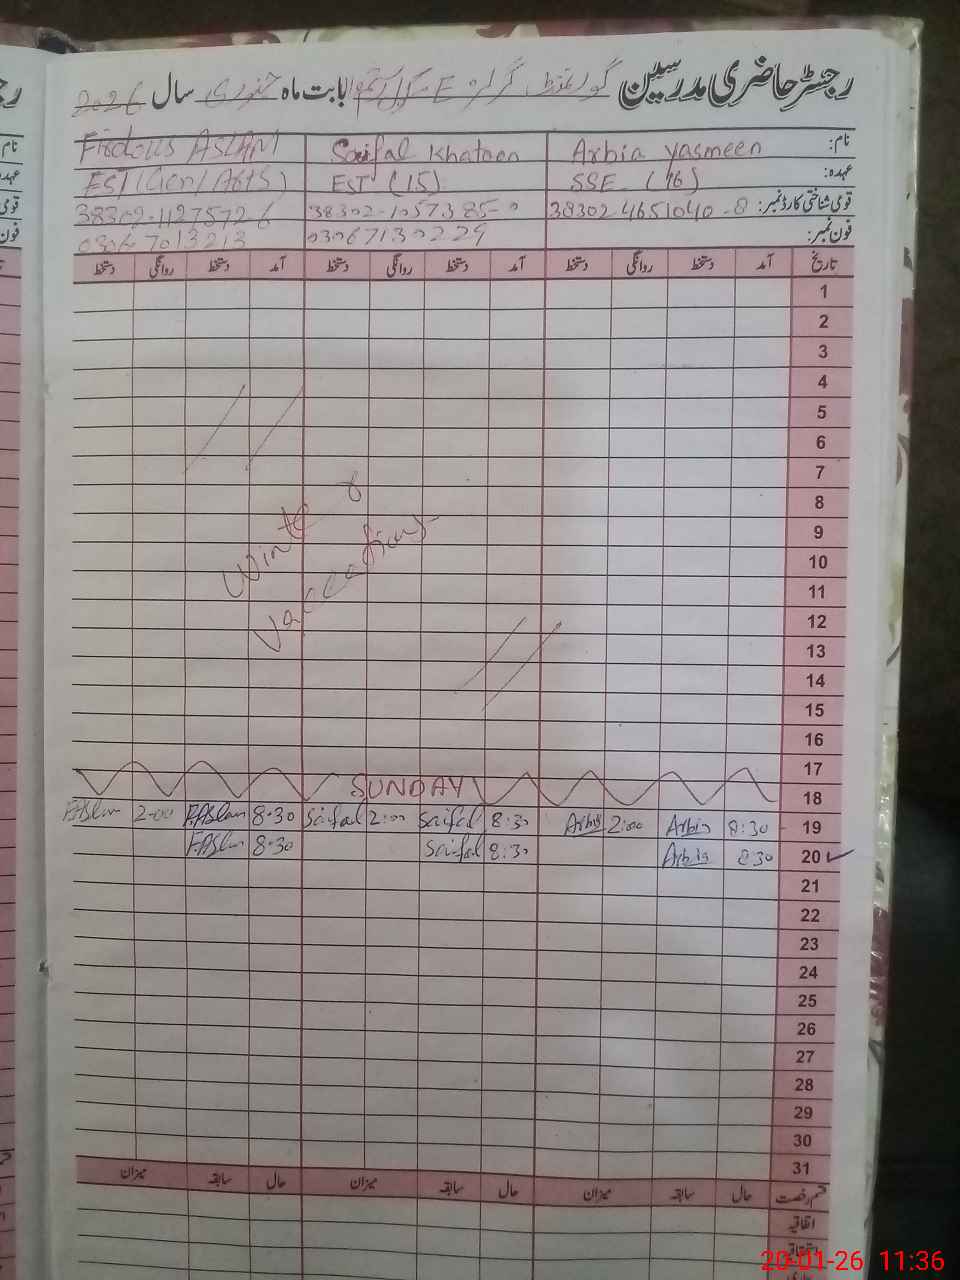 رجسٹر حاضری مدرسین گورنمنٹ گرلز E سکول بابت ماہ جنوری سال 2026
نام: Arbia yasmeen Saifal Khatoon Firdous ASLAM
عہدہ: SSE (16) EST (15) EST (Gen/Arts)
قومی شناختی کارڈ نمبر: 38302 4651040-8 38302-1057385-0 38302-1127572 6
فون نمبر: 03067130229 0306 7013213
تاریخ آمد دستخط روانگی دستخط آمد دستخط روانگی دستخط آمد دستخط روانگی دستخط
1
2
3
4
5
6
7
8
9
10
11
12
13
14
15
16
17
Winter
Vaccations
SUNDAY
18
19 8:30 Arbia 2:00 Arbia 8:30 Saifal 2:00 Saifal 8:30 F.ASlam 2:00 F.ASlam
20 ✓ 8:30 Arbia 8:30 Saifal 8:30 F.ASlam
21
22
23
24
25
26
27
28
29
30
31
قسم رخصت حال سابقہ میزان حال سابقہ میزان حال سابقہ میزان
اتفاقیہ
20-01-26 11:36